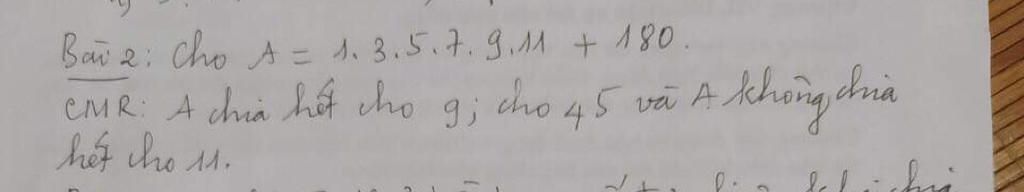 Bài 2: Cho A = 1.3.5.7.9.11 + 180.
CMR: A chia hết cho 9; cho 45 và A không chia
hết cho 11.